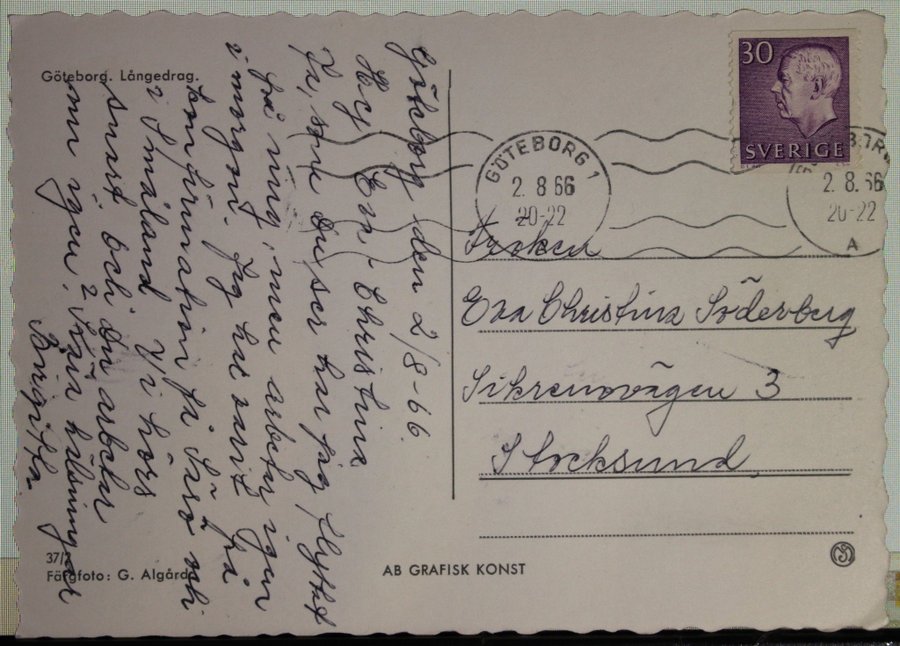 Göteborg. Långedrag.
Göteborg den 2/8-66.
Hej Eva-Christina
Ja, som Du ser har jag flyttat
på mig, men arbetar igen
i morgon. Jag har varit på
konfirmation på Särö och
i Småland. Vi hörs
snart och Du arbetar
nu igen? Kära hälsningar
Birgitta.
30
SVERIGE
GÖTEBORG 1
2.8.66
20-22
2.8.66
20-22
A
Fröken
Eva Christina Söderberg
Stocksund
37/2
Färgfoto: G. Algård
AB GRAFISK KONST